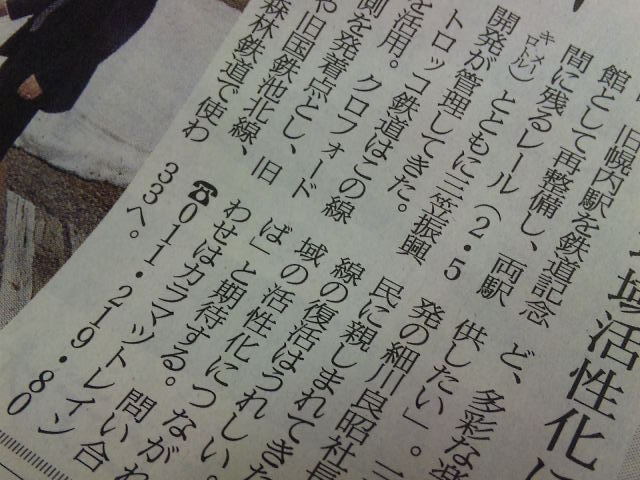 場活性化に
旧幌内駅を鉄道記念
館として再整備し、両駅
間に残るレール(2・5
キロメートル)とともに三笠振興
開発が管理してきた。
トロッコ鉄道はこの線
を活用。クロフォード
側を発着点とし、
や旧国鉄池北線、旧
森林鉄道で使わ
ど、多彩な楽
供したい」。三
発の細川良昭社長
民に親しまれてきた
線の復活はうれしい。
域の活性化につながれ
ば」と期待する。問い合
わせはカラマツトレイン
☎011・219・80
33へ。